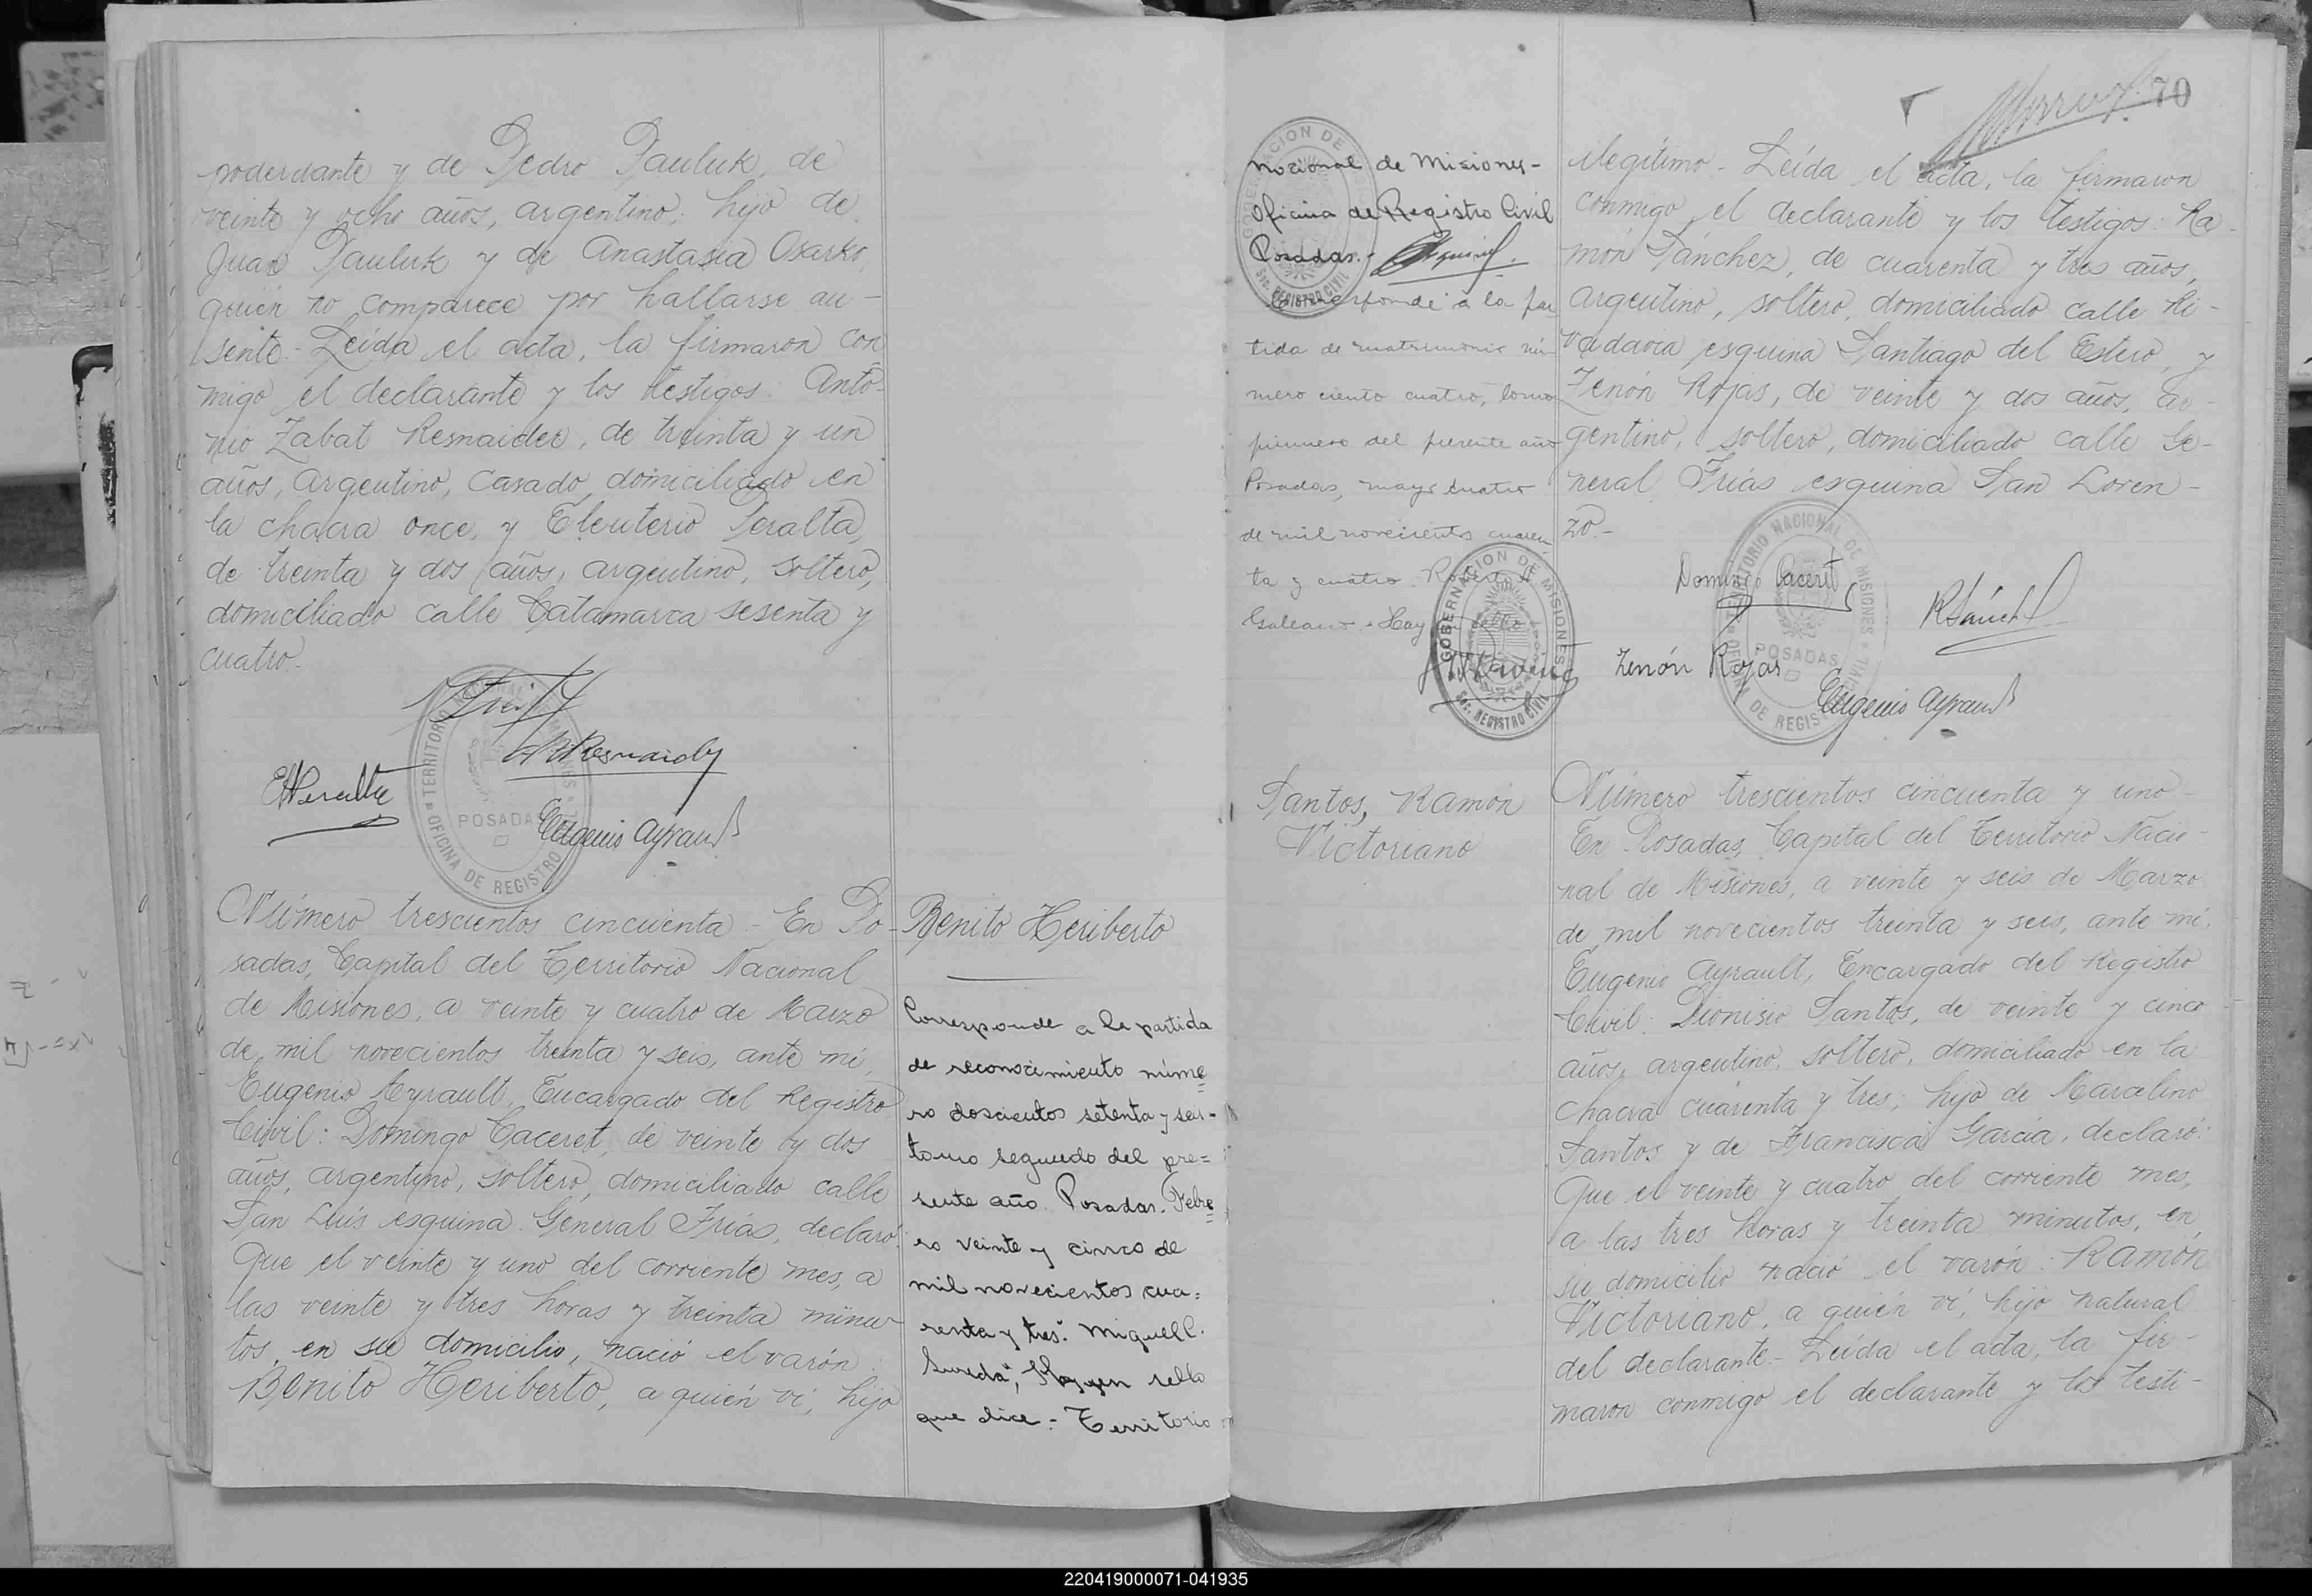 poderdante y de Pedro Pauluk, de
veinte y ocho años, argentino, hijo de
Juan Pauluk y de Anastasia Osarko,
quién no comparece por hallarse au-
sente.- Leída el acta, la firmaron con
migo el declarante y los testigos: Anto-
nio Zabat Resnaider, de treinta y un
años, argentino, casado, domiciliado en
la chacra once, y Eleuterio Peralta,
de treinta y dos años, argentino, soltero,
domiciliado calle Catamarca sesenta y
cuatro.-
TERRITORIO NACIONAL DE MISIONES
POSADAS
OFICINA DE REGISTRO
EPeralta
Eugenio Ayrault
Número trescientos cincuenta.- En Po-
sadas, Capital del Territorio Nacional
de Misiones, a veinte y cuatro de Marzo
de mil novecientos treinta y seis, ante mí,
Eugenio Ayrault, Encargado del Registro
Civil: Domingo Caceret, de veinte y dos
años, argentino, soltero, domiciliado calle
San Luis esquina General Frías, declaró:
Que el veinte y uno del corriente mes, a
las veinte y tres horas y treinta minu-
tos, en su domicilio, nació el varón:
Benito Heriberto, a quién ví, hijo
Benito Heriberto
Corresponde a la partida
de reconocimiento núme
ro doscientos setenta y seis-
tomo segundo del pre=
sente año. Posadas. Febre
ro veinte y cinco de
mil novecientos cua=
renta y tres". Miguel C.
Sureda", Hay un sello
que dice:- Territorio
nacional de Misiones-
Oficina de Registro Civil
Posadas.-
GOBERNACION DE MISIONES
SEC. REGISTRO CIVIL
Corresponde a la par
tida de matrimonio nú-
mero ciento cuatro, tomo
primero del presente año
Posadas, mayo cuatro
de mil novecientos cuaren
ta y cuatro. Robert A.
Galeano. Hay un sello
GOBERNACION DE MISIONES
SEC. REGISTRO CIVIL
Santos, Ramón
Victoriano
70
ilegítimo.- Leída el acta, la firmaron
conmigo el declarante y los testigos: Ra-
món Sánchez, de cuarenta y tres años,
argentino, soltero, domiciliado calle Ri-
vadavia esquina Santiago del Estero, y
Zenón Rojas, de veinte y dos años, ar-
gentino, soltero, domiciliado calle Ge-
neral Frías esquina San Loren-
zo.-
TERRITORIO NACIONAL DE MISIONES
POSADAS
OFICINA DE REGISTRO
Domingo Caceret
RSánchez
Zenón Rojas
Eugenio Ayrault
Número trescientos cincuenta y uno-
En Posadas, Capital del Territorio Nacio-
nal de Misiones, a veinte y seis de Marzo
de mil novecientos treinta y seis, ante mí,
Eugenio Ayrault, Encargado del Registro
Civil: Dionisio Santos, de veinte y cinco
años, argentino, soltero, domiciliado en la
chacra cuarenta y tres; hijo de Marcelino
Santos y de Francisca García, declaró:
Que el veinte y cuatro del corriente mes,
a las tres horas y treinta minutos, en
su domicilio nació el varón: Ramón
Victoriano, a quién ví, hijo natural
del declarante.- Leída el acta, la fir-
maron conmigo el declarante y los testi-
220419000071-041935